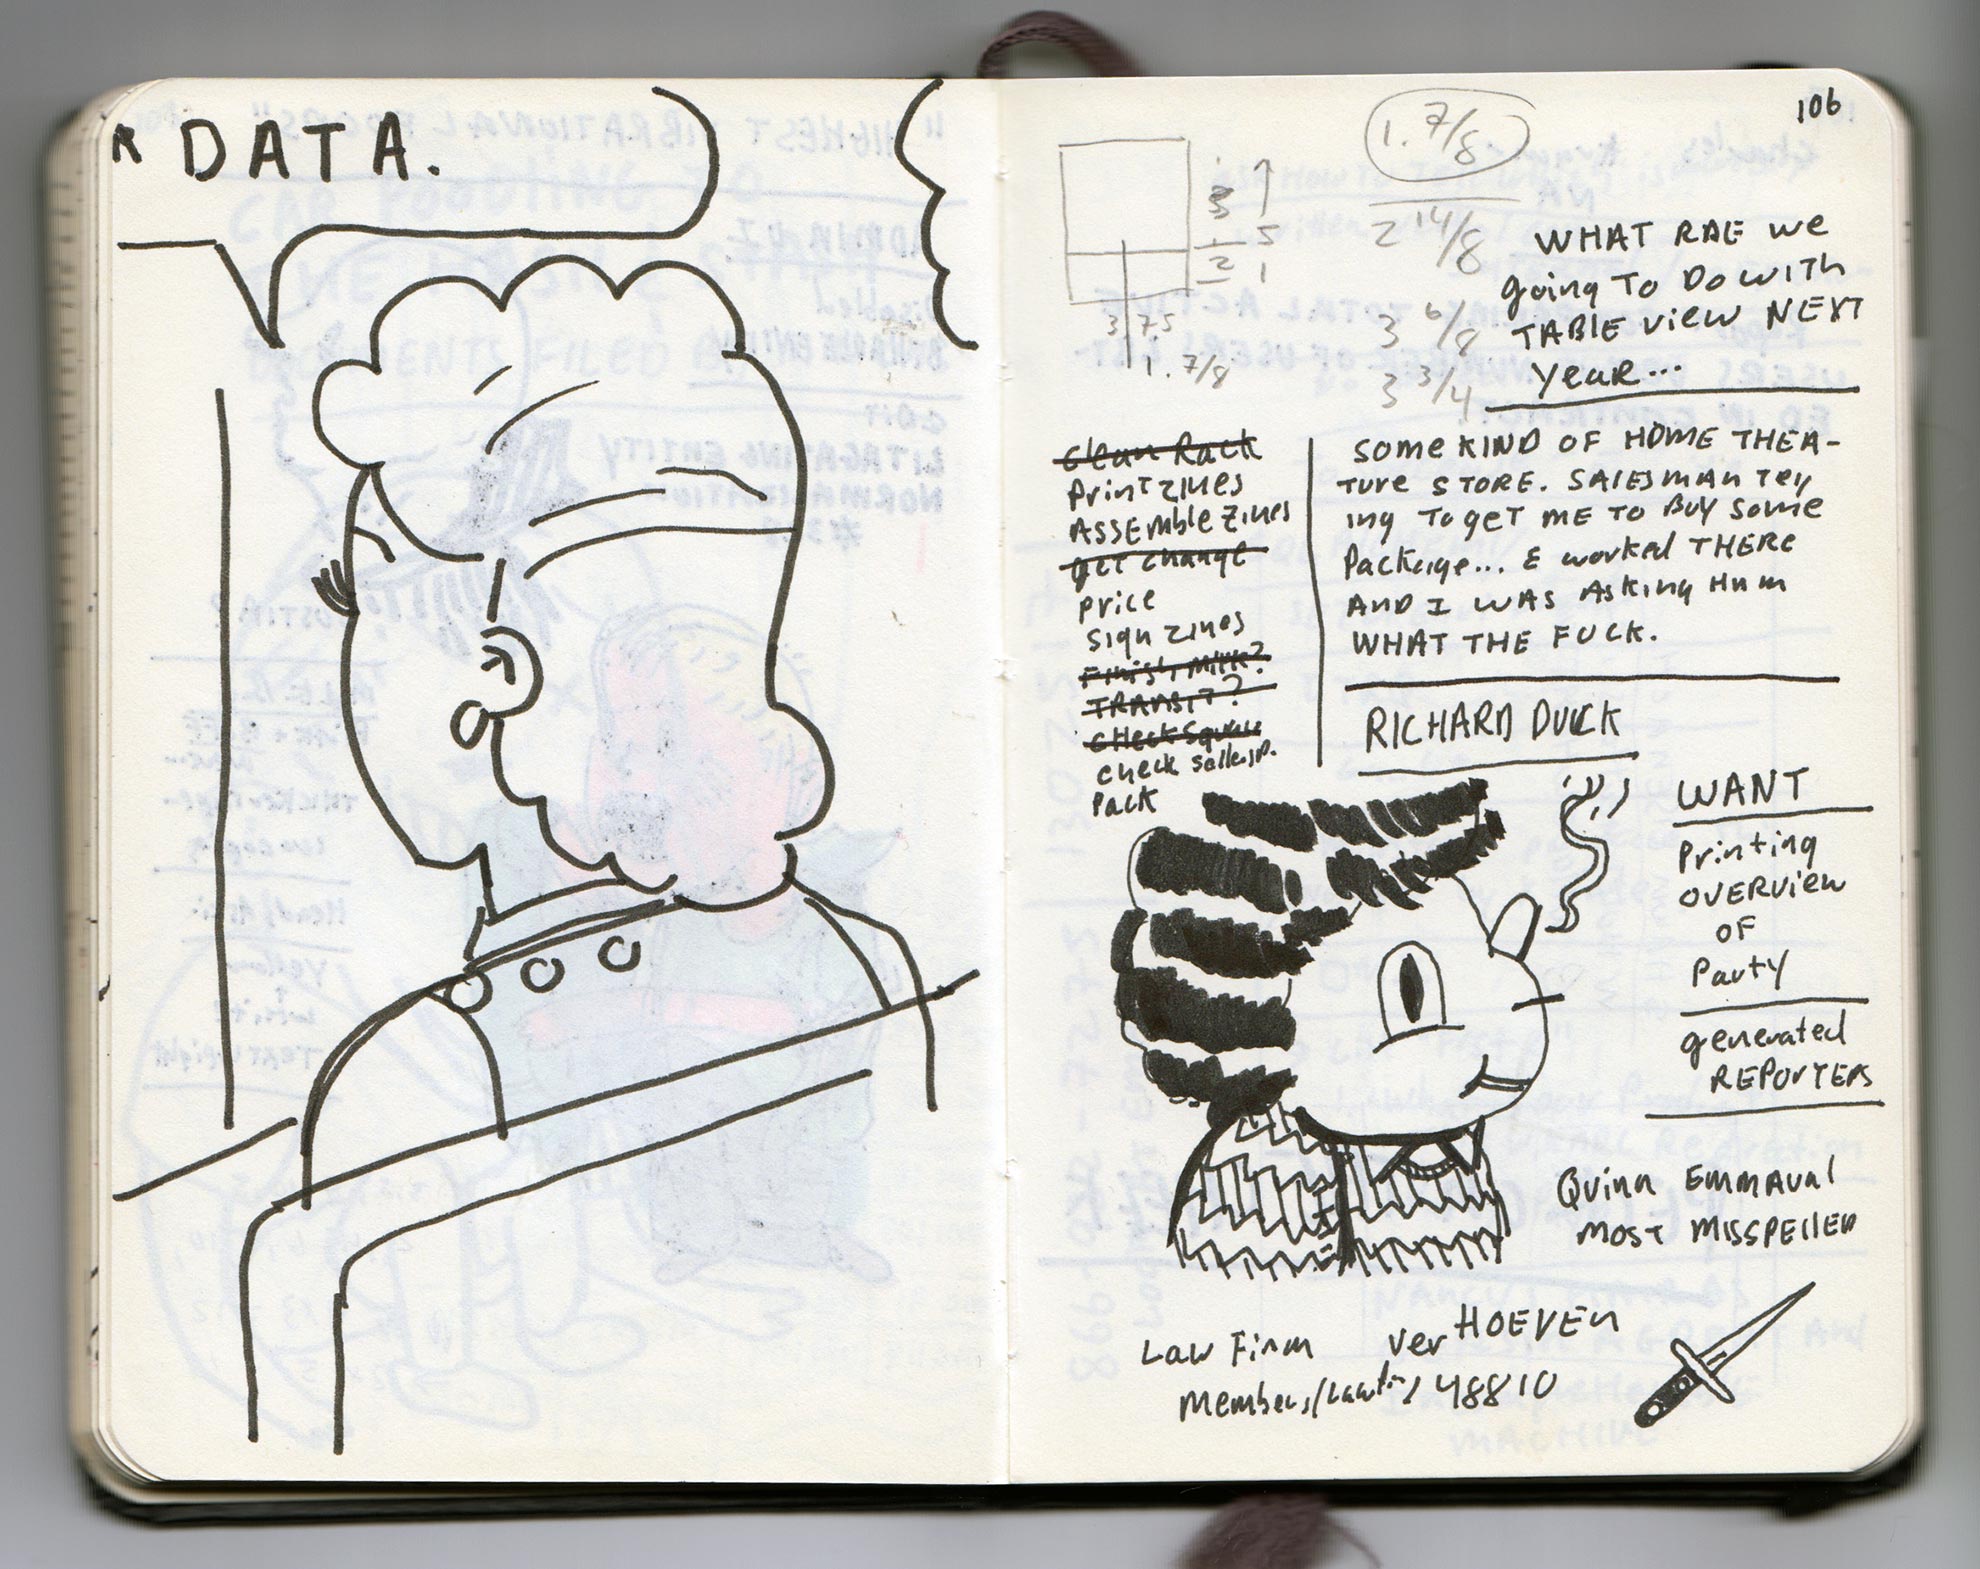 R DATA.
106
1. 7/8
2 14/8
3 6/8
3 3/4
3
2
5
1
3.75
1. 7/8
WHAT RAE we
going To Do with
TABLE view NEXT
year...
clean Rack
Print zines
Assemble zines
get change
price
sign zines
Finish Milk?
TRANSIT?
check square
check
Pack
some KIND OF HOME THEA-
TURE STORE. SALESMAN Try
ing To get ME TO BUY some
Package... E worked THERE
AND I WAS Asking Him
WHAT THE FUCK.
RICHARD DUCK
WANT
Printing
OVERVIEW
OF
Party
generated
REPORTERS
Quinn Emmaual
MOST MISSPELLED
Law Firm ver HOEVEN
Members/ 48810